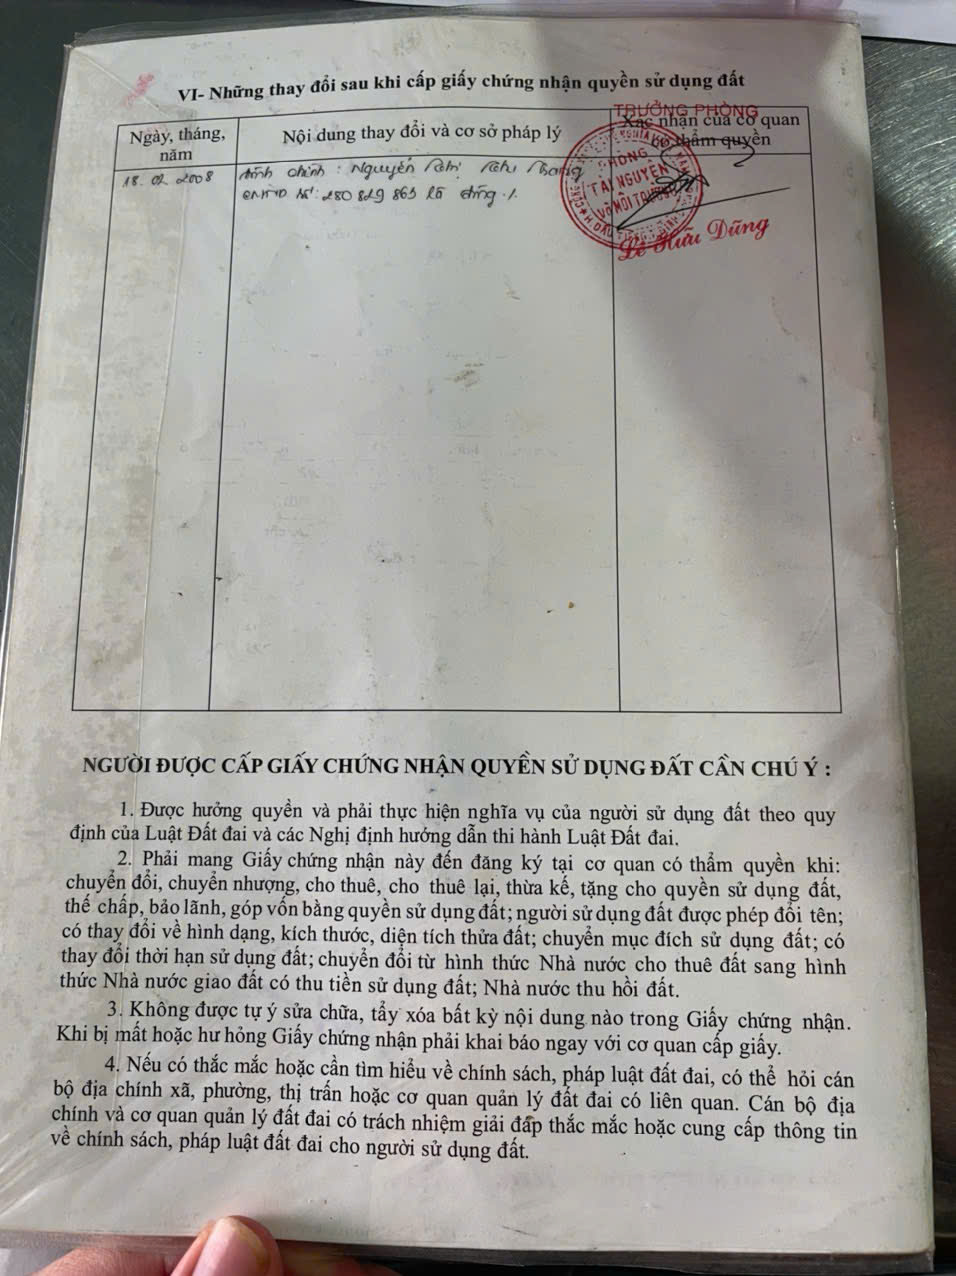 VI- Những thay đổi sau khi cấp giấy chứng nhận quyền sử dụng đất
Ngày, tháng, năm
Nội dung thay đổi và cơ sở pháp lý
Xác nhận của cơ quan
có thẩm quyền
TRƯỞNG PHÒNG
18. 02. 2008
đính chính : Nguyễn Thị Thu
CMND số: 280 829 863 là đúng ./.
PHÒNG
TÀI NGUYÊN
VÀ MÔI TRƯỜNG
Lê Hữu Dũng
NGƯỜI ĐƯỢC CẤP GIẤY CHỨNG NHẬN QUYỀN SỬ DỤNG ĐẤT CẦN CHÚ Ý :
1. Được hưởng quyền và phải thực hiện nghĩa vụ của người sử dụng đất theo quy
định của Luật Đất đai và các Nghị định hướng dẫn thi hành Luật Đất đai.
2. Phải mang Giấy chứng nhận này đến đăng ký tại cơ quan có thẩm quyền khi:
chuyển đổi, chuyển nhượng, cho thuê, cho thuê lại, thừa kế, tặng cho quyền sử dụng đất,
thế chấp, bảo lãnh, góp vốn bằng quyền sử dụng đất; người sử dụng đất được phép đổi tên;
có thay đổi về hình dạng, kích thước, diện tích thửa đất; chuyển mục đích sử dụng đất; có
thay đổi thời hạn sử dụng đất; chuyển đổi từ hình thức Nhà nước cho thuê đất sang hình
thức Nhà nước giao đất có thu tiền sử dụng đất; Nhà nước thu hồi đất.
3. Không được tự ý sửa chữa, tẩy xóa bất kỳ nội dung nào trong Giấy chứng nhận.
Khi bị mất hoặc hư hỏng Giấy chứng nhận phải khai báo ngay với cơ quan cấp giấy.
4. Nếu có thắc mắc hoặc cần tìm hiểu về chính sách, pháp luật đất đai, có thể hỏi cán
bộ địa chính xã, phường, thị trấn hoặc cơ quan quản lý đất đai có liên quan. Cán bộ địa
chính và cơ quan quản lý đất đai có trách nhiệm giải đáp thắc mắc hoặc cung cấp thông tin
về chính sách, pháp luật đất đai cho người sử dụng đất.